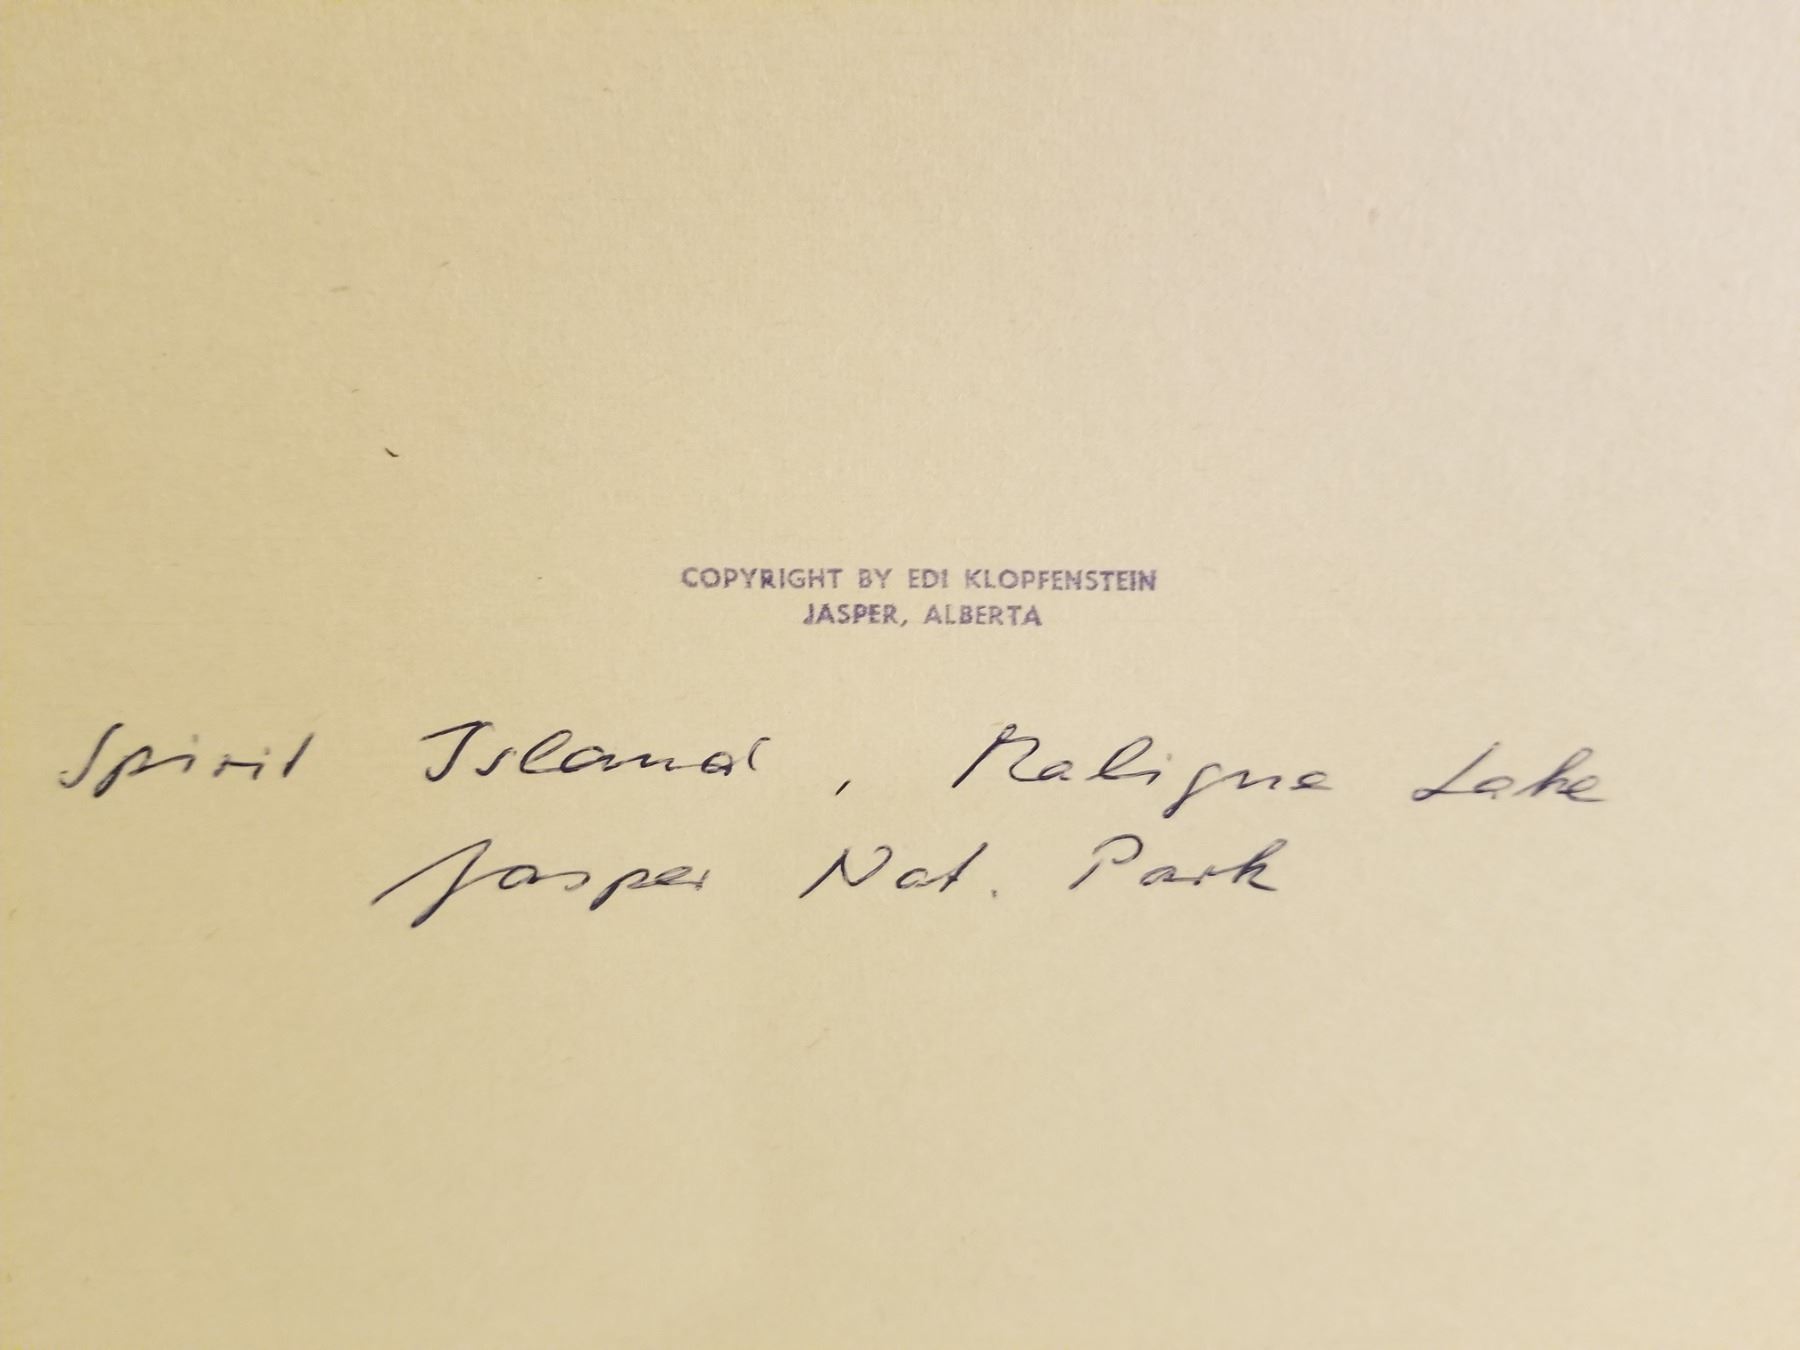 COPYRIGHT BY EDI KLOPFENSTEIN
JASPER, ALBERTA
Spirit Island, Maligne Lake
Jasper Nat. Park